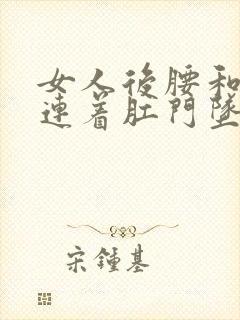 女人後腰和
連着肛門墜
宋鍾基